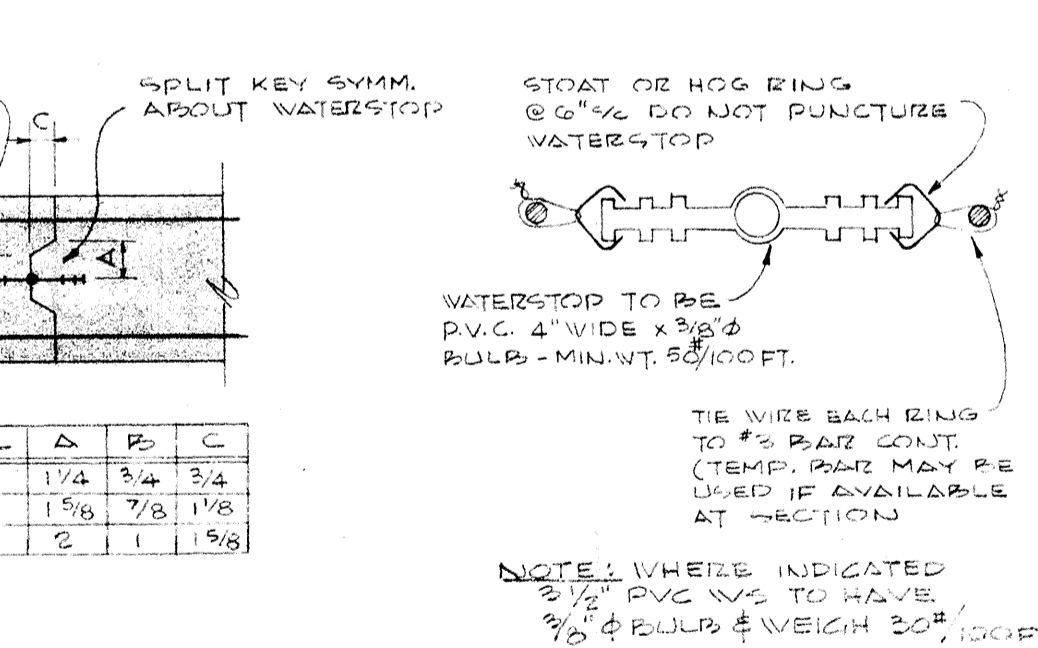 SPLIT KEY SYMM.
ABOUT WATERSTOP
C
A
STOAT OR HOG RING
@ 6" c/c DO NOT PUNCTURE
WATERSTOP
WATERSTOP TO BE
P.V.C. 4" WIDE x 3/8" Φ
BULB - MIN. WT. 50#/100 FT.
TIE WIRE EACH RING
TO #3 BAR CONT.
(TEMP. BAR MAY BE
USED IF AVAILABLE
AT SECTION
A B C
1 1/4 3/4 3/4
1 5/8 7/8 1 1/8
2 1 1 5/8
NOTE: WHERE INDICATED
3 1/2" PVC WS TO HAVE
3/8" Φ BULB & WEIGH 30#/100F